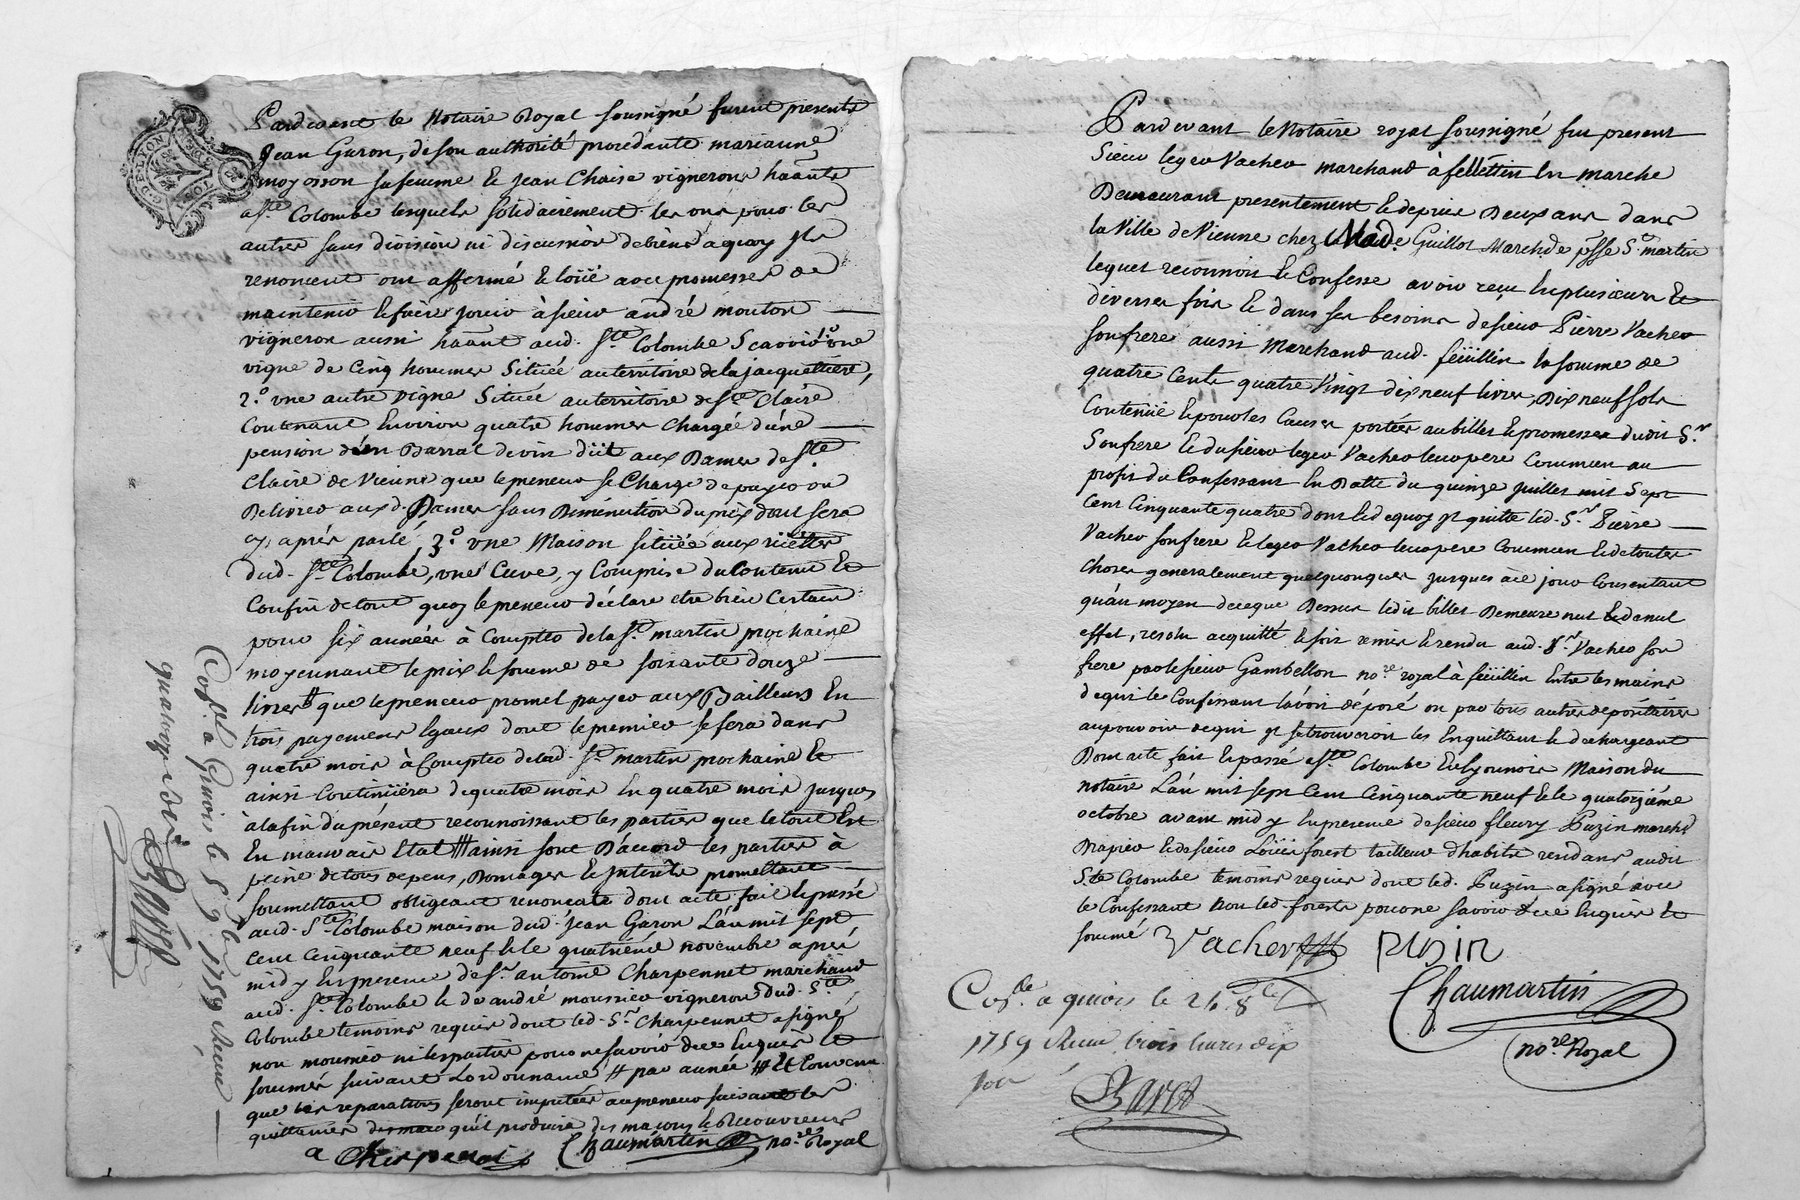 Pardevant le Notaire Royal soussigné furent presents
Jean Garon, de son authorité procedante mariaune
moyosson sa femme et Jean Chaise vignerons hãants
a Ste Colombe lesquels solidairement les uns pour les
autres sans division ni discussion de biens a quoy ils
renoncent ont affermé et loüé avec promesses de
maintenir et faire jouir à sieur andré mouton
vigneron aussi hãant aud. Ste Colombe Scavoir 1o une
vigne de Cinq hommes Située au territoire de la jacquettiere,
2.o une autre vigne Située au territoire de Ste Claire
Contenant Environ quatre hommes chargée d'une
pension d'un Barral de vin düt aux Dames de Ste
Claire de Vienne que le preneur se Charge de payer ou
Delivrer aux d. Dames sans Diminution du prix dont sera
cy après parlé 3.o une Maison située aux
dud. Ste Colombe, une Cuve, y Comprise du Contenu Et
Confin de tout quoy le preneur déclare etre bien Certain
pour six années à Compter de la St martin prochaine
moyennant le prix et somme de soixante douze
livres # que le preneur promet payer aux Bailleurs En
trois payemens Egaux dont le premier se fera dans
quatre mois à Compter de lad. St martin prochaine Et
ainsi Continüera de quatre mois En quatre mois jusques
à la fin du présent reconnoissant les parties que le tout Est
En mauvais Etat # ainsi sont D'accord les parties à
peine de tous depens, Domages et Interêts promettant
soumettant obligeant renoncants dont acte fait et passé
aud. Ste Colombe maison dud. jean Garon L'an mil sept
cent cinquante neuf et le quatrieme novembre après
midy En presence de Sr antoine Charpennet marchand
aud. Ste Colombe et de andré mousnier vigneron dud. Ste
Colombe temoins requis dont led. Sr Charpennet a signé
non mounier ni les parties pour ne savoir de ce Enquis Et
sommés suivant Lordonnance # par année # Et Convenu
que les reparations seront imputées au preneur suivant les
quittances qu'il produira des maçons et Couvreurs
Charpennet Chaumartin no.re Royal
Co.lle a Givors le 5 9.bre 1759 Recu
quatorze sols
Bavet
Pardevant le Notaire royal soussigné fut present
Sieur leger Vacher marchand à fellettin En marche
Demeurant presentement et depuis Deux ans dans
la Ville de Vienne chez le Guillot Marchd de psse St martin
lequel reconnoit et Confesse avoir reçu En plusieurs Et
diverses fois et dans ses besoins de sieur Pierre Vacher
son frere aussi Marchand aud. feüillin la somme de
quatre Cents quatre Vingt dix neuf livres, Dix neuf sols
Contenüe et pour les Causes portées au billet et promesse dudit Sr
Son frere et du sieur leger Vacher leur pere Commun au
profit du Confessant En Datte du quinze juillet mil Sept
Cent Cinquante quatre dont et de quoy il quitte led. Sr Pierre
Vacher son frere et leger Vacher leur pere Commun et de toutes
choses generalement quelquonques jusques à ce jour Consentant
qu'au moyen de ce que Dessus ledit billet Demeure nul et de nul
effet, resolu acquitté et soit remis et rendu aud. Sr Vacher son
frere par le sieur Gambellon no.re royal à feüillin Entre les mains
de qui le Confessant l'avoit déposé ou par tous autres depositaires
au pouvoir de qui il se trouveroit les En quittant et dechargeant
Dont acte fait et passé a Ste Colombe En Lyonnois Maison du
notaire L'an mil sept Cent Cinquante neuf et le quatorzième
octobre avant midy En presence de sieur fleury Puzin marchd
Drapier et de sieur Loüis forest tailleur d'habits residans audit
Ste Colombe temoins requis dont led. Puzin a signé avec
le Confessant Non led. forest pour ne savoir de ce Enquis Et
sommé Vacher Puzin
Chaumartin
no.re Royal
Co.lle a givors le 24 8.bre
1759 Recu trois livres dix
sols
Bavet